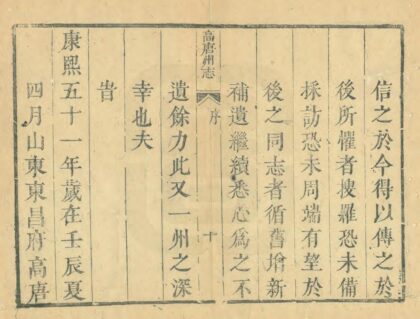 信之於今得以傳之於
後所懼者搜羅恐未備
採訪恐未周端有望於
後之同志者循舊增新
補遺繼續悉心為之不
高唐州志
序
十
遺餘力此又一州之深
幸也夫
旹
康熙五十一年歲在壬辰夏
四月山東東昌府高唐